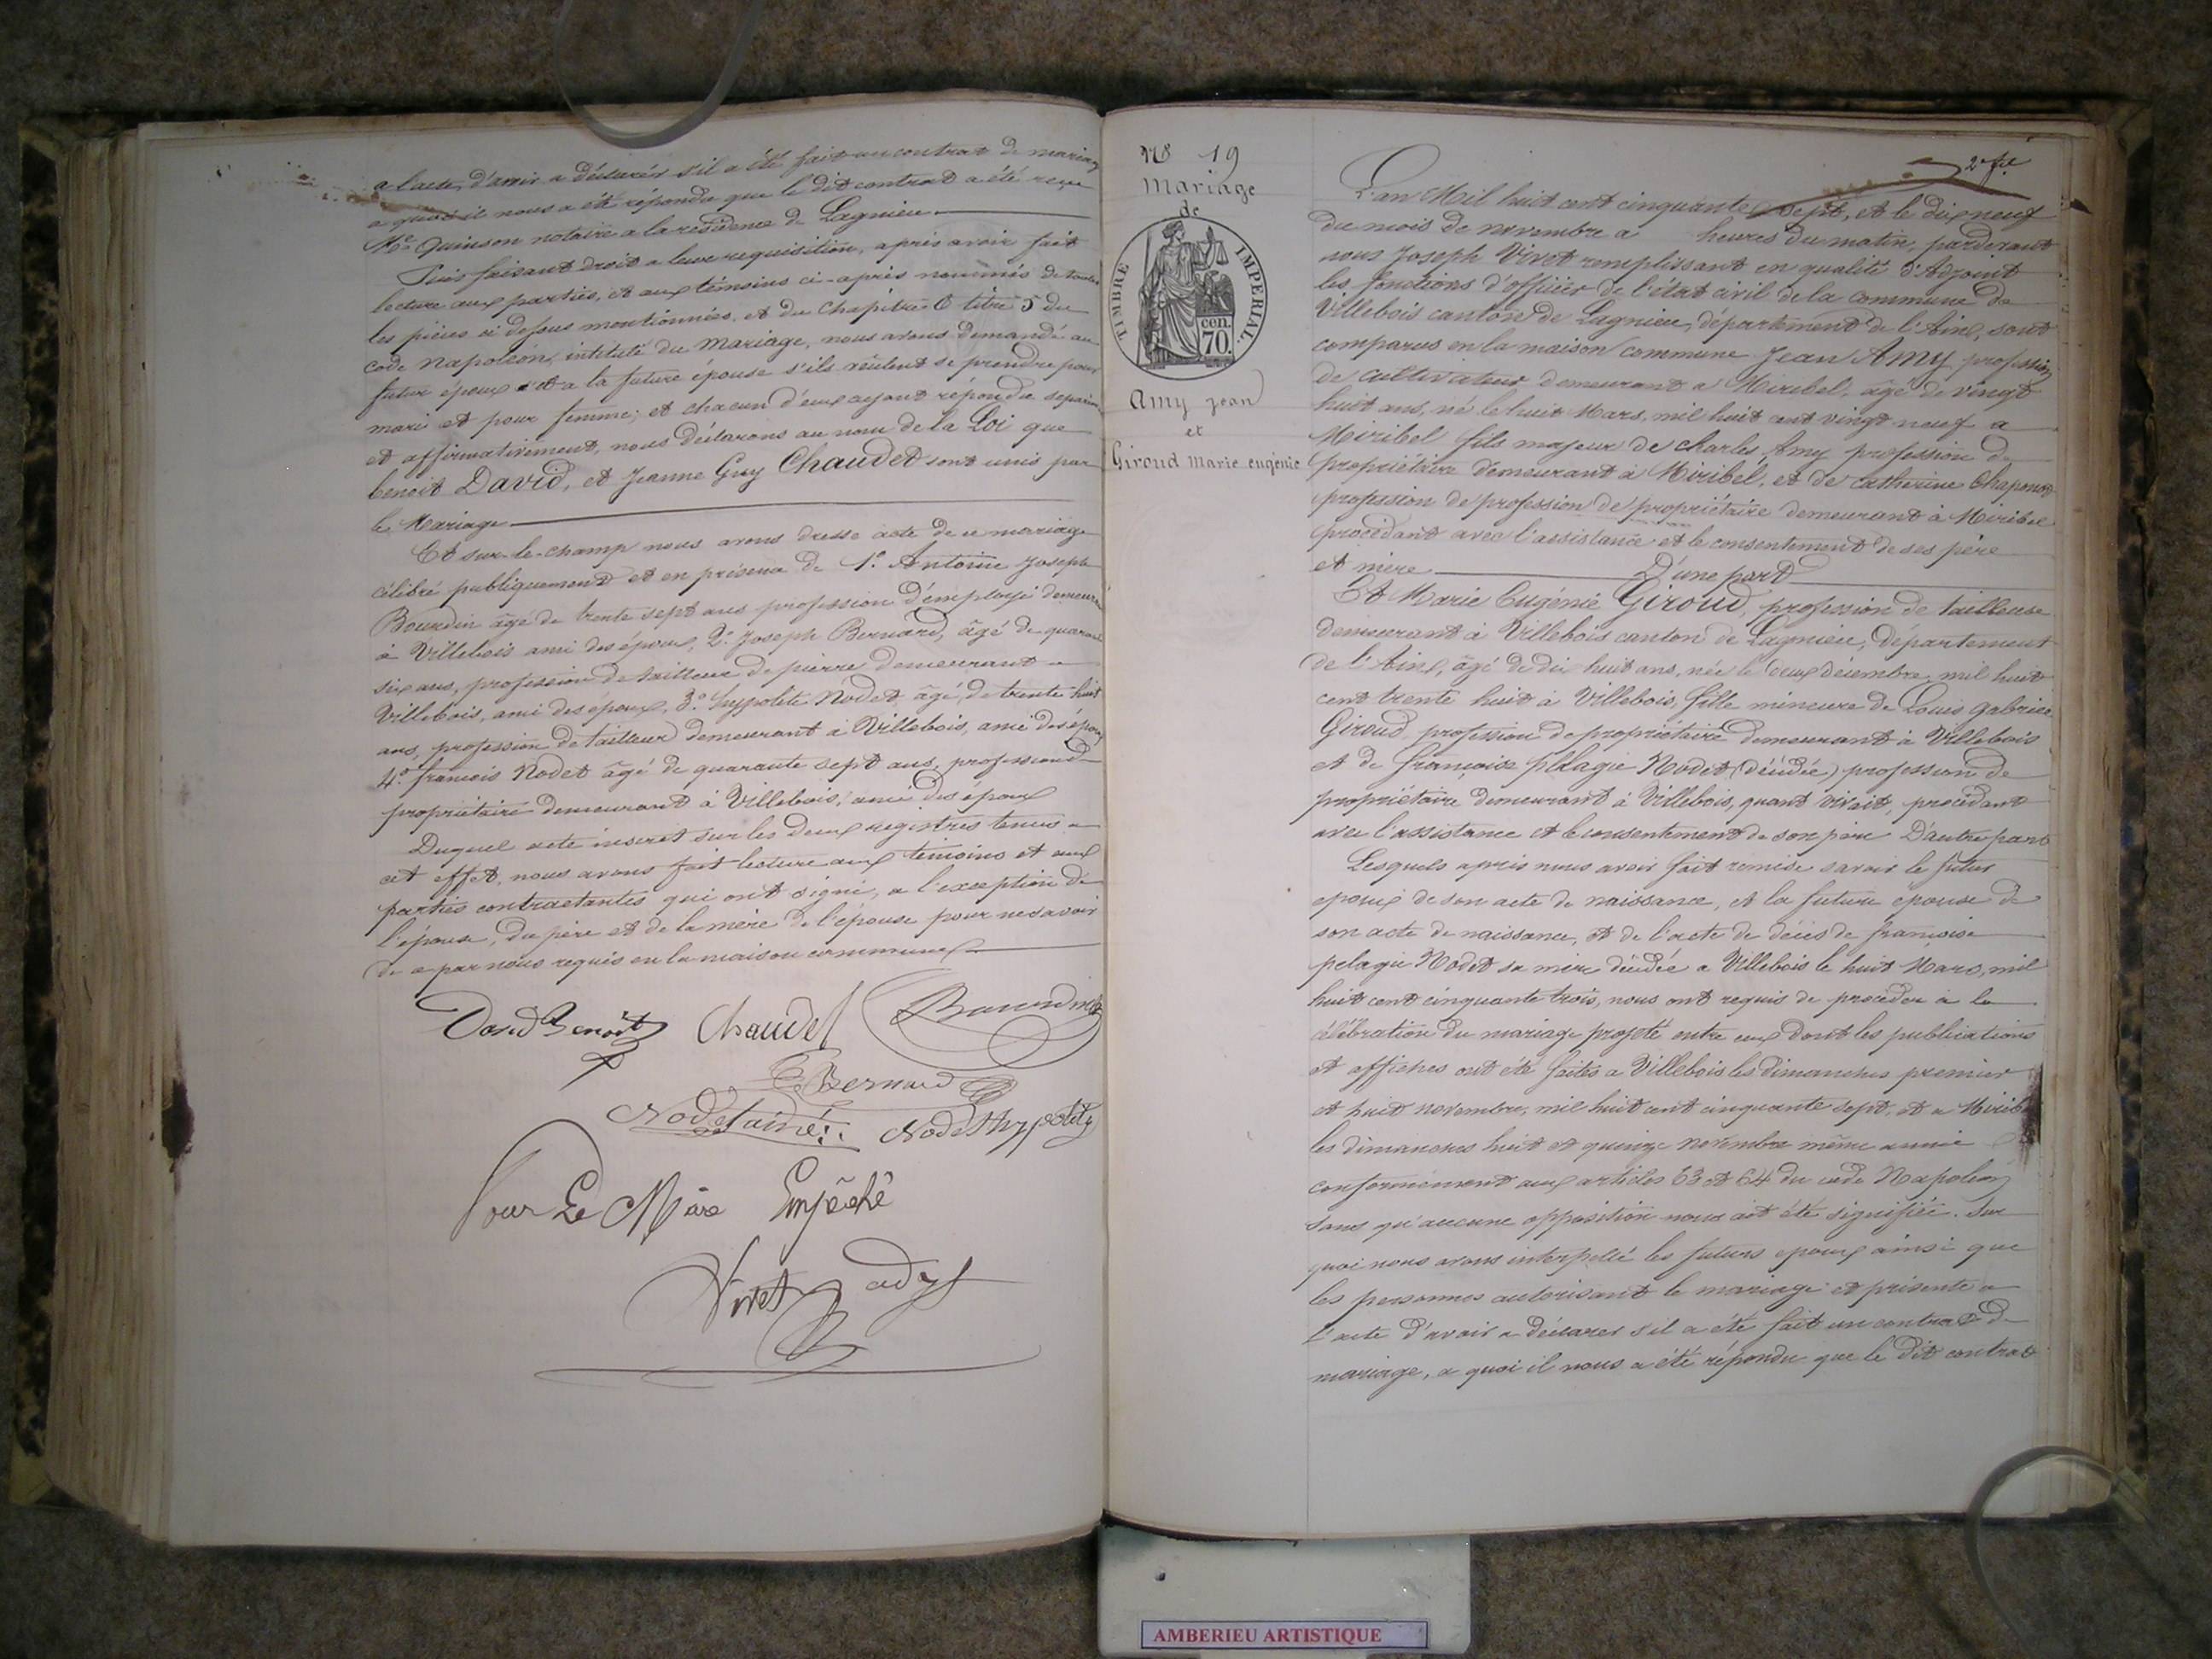 a l'acte, d'avoir a déclarer s'il a été fait un contrat de mariage
a quoi il nous a été répondu que le dit contrat a été reçu
Me Quinson notaire a la résidence de Lagnieu
Puis faisant droit a leur requisition, après avoir fait
lecture aux parties, et aux témoins ci-après nommés de toutes
les pièces ci dessus mentionnées, et du chapitre 6 titre 5 du
code Napoléon, intitulé du Mariage, nous avons demandé au
futur époux et a la future épouse s'ils veulent se prendre pour
mari et pour femme; et chacun d'eux ayant répondu séparém
et affirmativement, nous déclarons au nom de la Loi que
benoit David, et Jeanne Guy Chaudet sont unis par
le Mariage
Et sur-le-champ nous avons dressé acte de ce mariage
célébré publiquement et en présence de 1o. Antoine Joseph
Bourdin âgé de trente sept ans profession d'employé demeurant
à Villebois ami des époux, 2o. Joseph Bernard, âgé de quarante
six ans, profession de tailleur de pierre demeurant a
Villebois, ami des époux, 3o. hyppolite Nodet âgé, de trente huit
ans, profession de tailleur demeurant à Villebois, ami des époux
4o. francois Nodet âgé de quarante sept ans, profession de
propriétaire demeurant à Villebois, ami des époux
Duquel acte inscrit sur les deux registres tenus a
cet effet, nous avons fait lecture aux temoins et aux
parties contractantes qui ont signé, a l'exception de
l'épouse, du père et de la mère de l'épouse pour ne savoir
de ce par nous requis en la maison commune
David Benoit Chaudet Bourdin
Bernard
Nodet ainé Nodet hyppolite
Pour Le Maire Empêché
Vivet adjt
No 19
Mariage
de
TIMBRE IMPERIAL.
70. cen.
Amy jean
et
Giroud Marie eugénie
2e fle
L'an Mil huit cent cinquante sept, et le dix neuf
du mois de novembre a heures du matin, pardevant
nous Joseph Vivet remplissant en qualité d'Adjoint
les fonctions d'officier de l'état civil de la commune de
Villebois canton de Lagnieu, département de l'Ain, sont
comparus en la maison commune Jean Amy profession
de cultivateur demeurant a Miribel, âgé de vingt
huit ans, né le huit Mars, mil huit cent vingt neuf a
Miribel fils majeur de Charles Amy profession de
propriétaire demeurant à Miribel, et de catherine Chaponod
profession de profession de propriétaire demeurant à Miribel
procédant avec l'assistance et le consentement de ses père
et mère D'une part
Et Marie Eugénie Giroud, profession de tailleuse
demeurant à Villebois canton de Lagnieu, département
de l'Ain, âgé de dix huit ans, née le deux décembre mil huit
cent trente huit à Villebois, fille mineure de Louis gabriel
Giroud profession de propriétaire demeurant à Villebois
et de françoise pélagie Nodet (décédée) profession de
propriétaire demeurant à Villebois, quant vivait, procédant
avec l'assistance et le consentement de son père D'autre part
Lesquels après nous avoir fait remise savoir le futur
epoux de son acte de naissance, et la future épouse de
son acte de naissance, et de l'acte de décès de françoise
pelagie Nodet sa mère décédée a Villebois le huit Mars, mil
huit cent cinquante trois, nous ont requis de procéder à la
célébration du mariage projeté entre eux dont les publications
et affiches ont été faites a Villebois les dimanches premier
et huit novembre, mil huit cent cinquante sept, et a Mirib
les dimanches huit et quinze novembre même année
conformément aux articles 63 et 64 du code Napoléon
sans qu'aucune opposition nous ait été signifiée. Sur
quoi nous avons interpellé les futurs epoux ainsi que
les personnes autorisant le mariage et présente a
l'acte d'avoir a déclarer s'il a été fait un contrat de
mariage, a quoi il nous a été répondu que le dit contrat
AMBERIEU ARTISTIQUE